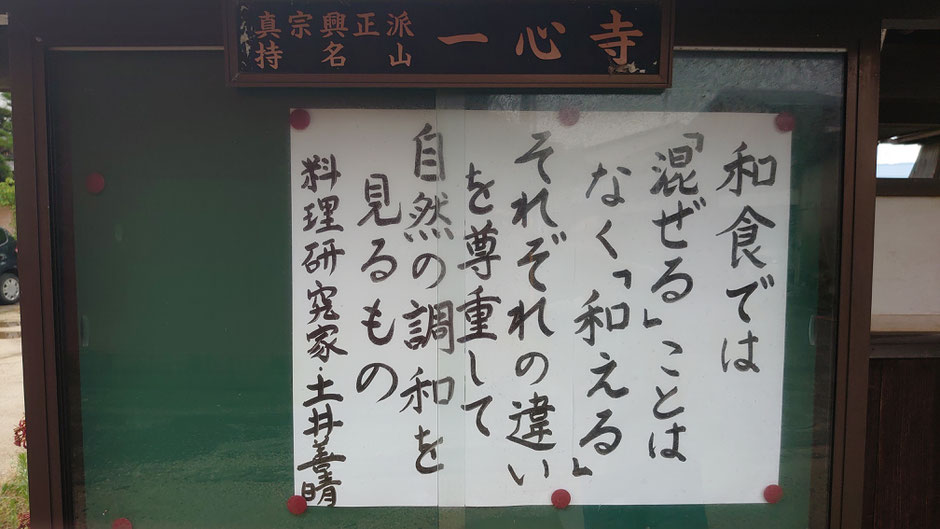 真宗興正派
持名山
一心寺
和食では
「混ぜる」ことは
なく「和える」
それぞれの違い
を尊重して
自然の調和を
見るもの
料理研究家・土井善晴